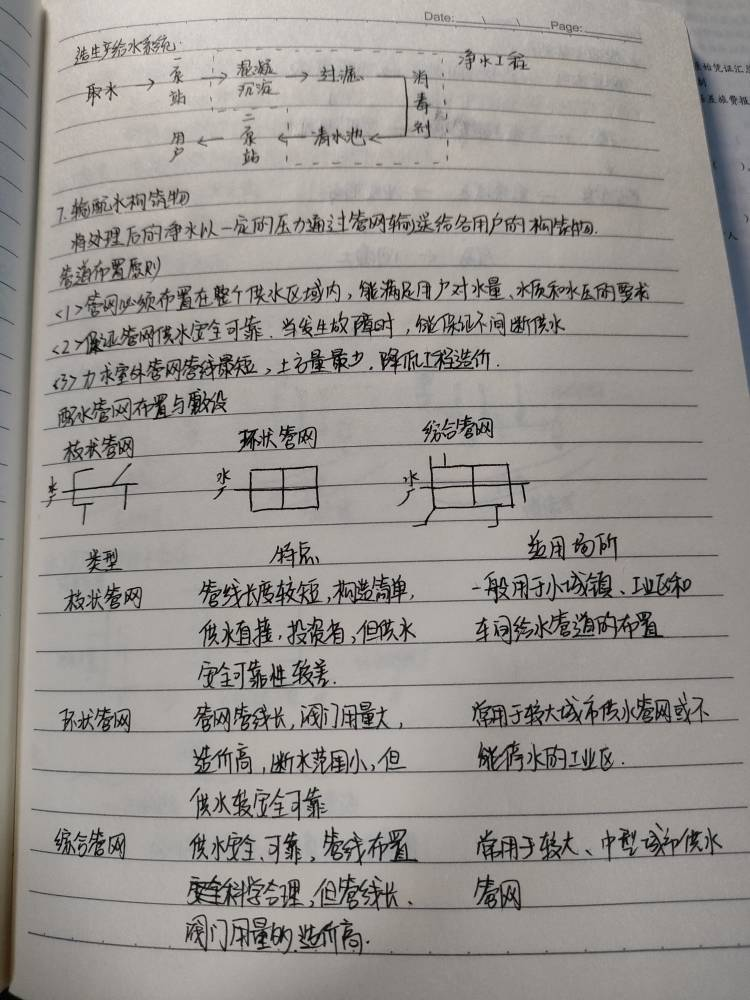 Date: Page:
给水系统:
取水 → 一泵站 → 混凝沉淀 → 过滤 消毒剂 净水工程
用户 ← 二泵站 ← 清水池
7.输配水构筑物
将处理后的净水以一定的压力通过管网输送给各用户的构筑物.
管道布置原则
<1>管网必须布置在整个供水区域内,能满足用户对水量、水质和水压的要求
<2>保证管网供水安全可靠.当发生故障时,能保证不间断供水
<3>力求室外管网管线最短,土方量最少,降低工程造价.
配水管网布置与敷设
枝状管网 环状管网 综合管网
水厂 水厂 水厂
类型 特点 适用场所
枝状管网 管线长度较短,构造简单, 一般用于小城镇、工业区和
供水直接,投资省,但供水 车间给水管道的布置
安全可靠性较差.
环状管网 管网管线长,阀门用量大, 常用于较大城市供水管网或不
造价高,断水范围小,但 能停水的工业区.
供水较安全可靠
综合管网 供水安全、可靠,管线布置 常用于较大、中型城市供水
科学合理,但管线长、 管网
阀门用量的造价高.